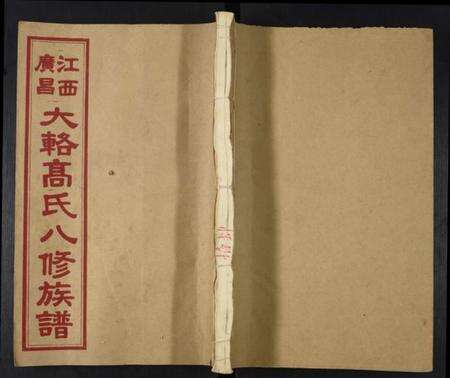 江西
廣昌
大輅高氏八修族譜